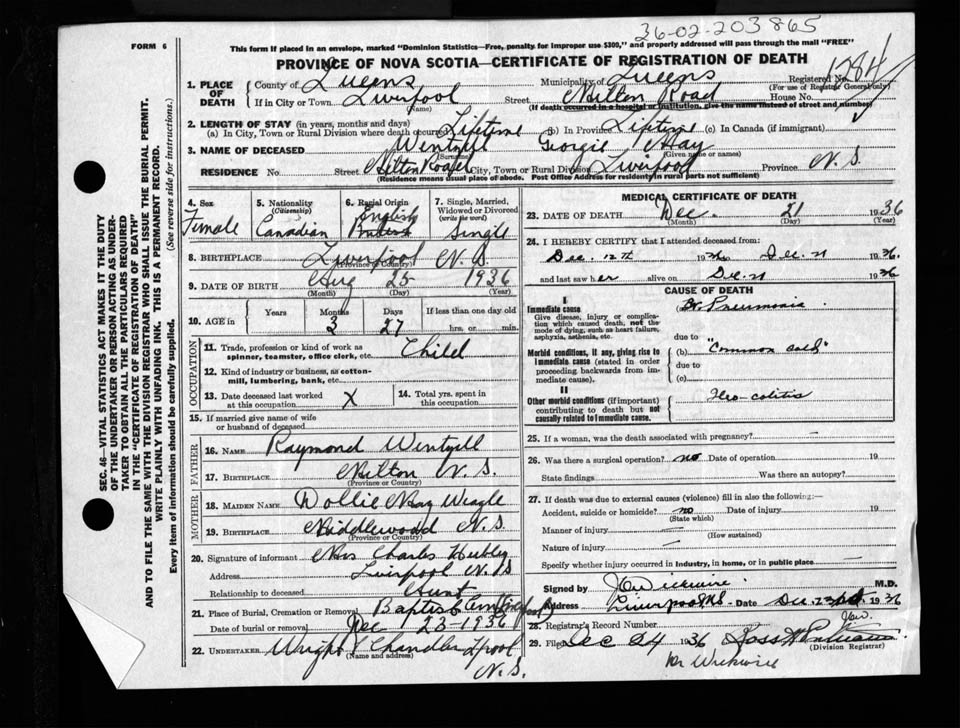 36-02-203865
FORM 6
This form if placed in an envelope, marked "Dominion Statistics—Free, penalty for improper use $300," and properly addressed will pass through the mail "FREE"
PROVINCE OF NOVA SCOTIA—CERTIFICATE OF REGISTRATION OF DEATH
1. PLACE OF DEATH County of Queens Municipality of Queens Registered No. 1284
(For use of Registrar General only)
If in City or Town Liverpool Street Milton Road House No.
(Name) (If death occurred in a hospital or institution, give the name instead of street and number)
2. LENGTH OF STAY (in years, months and days)
(a) In City, Town or Rural Division where death occurred Lifetime (b) in Province Lifetime (c) In Canada (if immigrant)
3. NAME OF DECEASED Wentzell Georgie May
(Surname) (Given name or names)
RESIDENCE No. Street Milton Road City, Town or Rural Division Liverpool Province N. S.
(Residence means usual place of abode. Post Office Address for residents in rural parts not sufficient)
4. Sex Female
5. Nationality (Citizenship) Canadian
6. Racial Origin English
7. Single, Married, Widowed or Divorced (write the word) Single
8. BIRTHPLACE Liverpool N. S.
(Province or Country)
9. DATE OF BIRTH Aug 25 1936
(Month) (Day) (Year)
10. AGE in Years Months 3 Days 27 If less than one day old hrs. or min.
OCCUPATION
11. Trade, profession or kind of work as spinner, teamster, office clerk, etc. Child
12. Kind of industry or business, as cotton-mill, lumbering, bank, etc.
13. Date deceased last worked at this occupation X 14. Total yrs. spent in this occupation
15. If married give name of wife or husband of deceased
FATHER
16. NAME Raymond Wentzell
17. BIRTHPLACE Milton N. S.
(Province or Country)
MOTHER
18. MAIDEN NAME Dollie May Weagle
19. BIRTHPLACE Middlewood N. S.
(Province or Country)
20. Signature of informant Mrs Charles Hubley
Address Liverpool N. S
Relationship to deceased Aunt
21. Place of Burial, Cremation or Removal Baptist Cem (Liverpool)
Date of burial or removal Dec 23-1936
22. UNDERTAKER Wright Chandler L'pool
(Name and address) N. S.
MEDICAL CERTIFICATE OF DEATH
23. DATE OF DEATH Dec. 21 1936
(Month) (Day) (Year)
24. I HEREBY CERTIFY that I attended deceased from:
Dec. 12th 1936 to Dec. 21 1936.
and last saw her alive on Dec. 21 1936
CAUSE OF DEATH
I
Immediate cause
Give disease, injury or complication which caused death, not the mode of dying, such as heart failure, asphyxia, asthenia, etc.
Br. Pneumonia
due to
Morbid conditions, if any, giving rise to immediate cause (stated in order proceeding backwards from immediate cause).
(b) "Common cold"
due to
(c)
II
Other morbid conditions (if important) contributing to death but not causally related to immediate cause.
Ileo-colitis
25. If a woman, was the death associated with pregnancy? —
26. Was there a surgical operation? no Date of operation 19
State findings Was there an autopsy?
27. If death was due to external causes (violence) fill in also the following:—
Accident, suicide or homicide? no Date of injury 19
(State which)
Manner of injury —
(How sustained)
Nature of injury —
Specify whether injury occurred in industry, in home, or in public place —
Signed by J C Wickwire M.D.
Address Liverpool N.S. Date Dec. 23rd 1936
28. Registrar's Record Number
29. Filed Dec 24 1936 Ross
(Division Registrar)
Dr Wickwire
SEC. 46—VITAL STATISTICS ACT MAKES IT THE DUTY
OF THE UNDERTAKER OR PERSON ACTING AS UNDER-
TAKER TO OBTAIN ALL THE PARTICULARS REQUIRED
IN THE "CERTIFICATE OF REGISTRATION OF DEATH"
AND TO FILE THE SAME WITH THE DIVISION REGISTRAR WHO SHALL ISSUE THE BURIAL PERMIT.
WRITE PLAINLY WITH UNFADING INK. THIS IS A PERMANENT RECORD.
Every item of information should be carefully supplied. (See reverse side for instructions.)